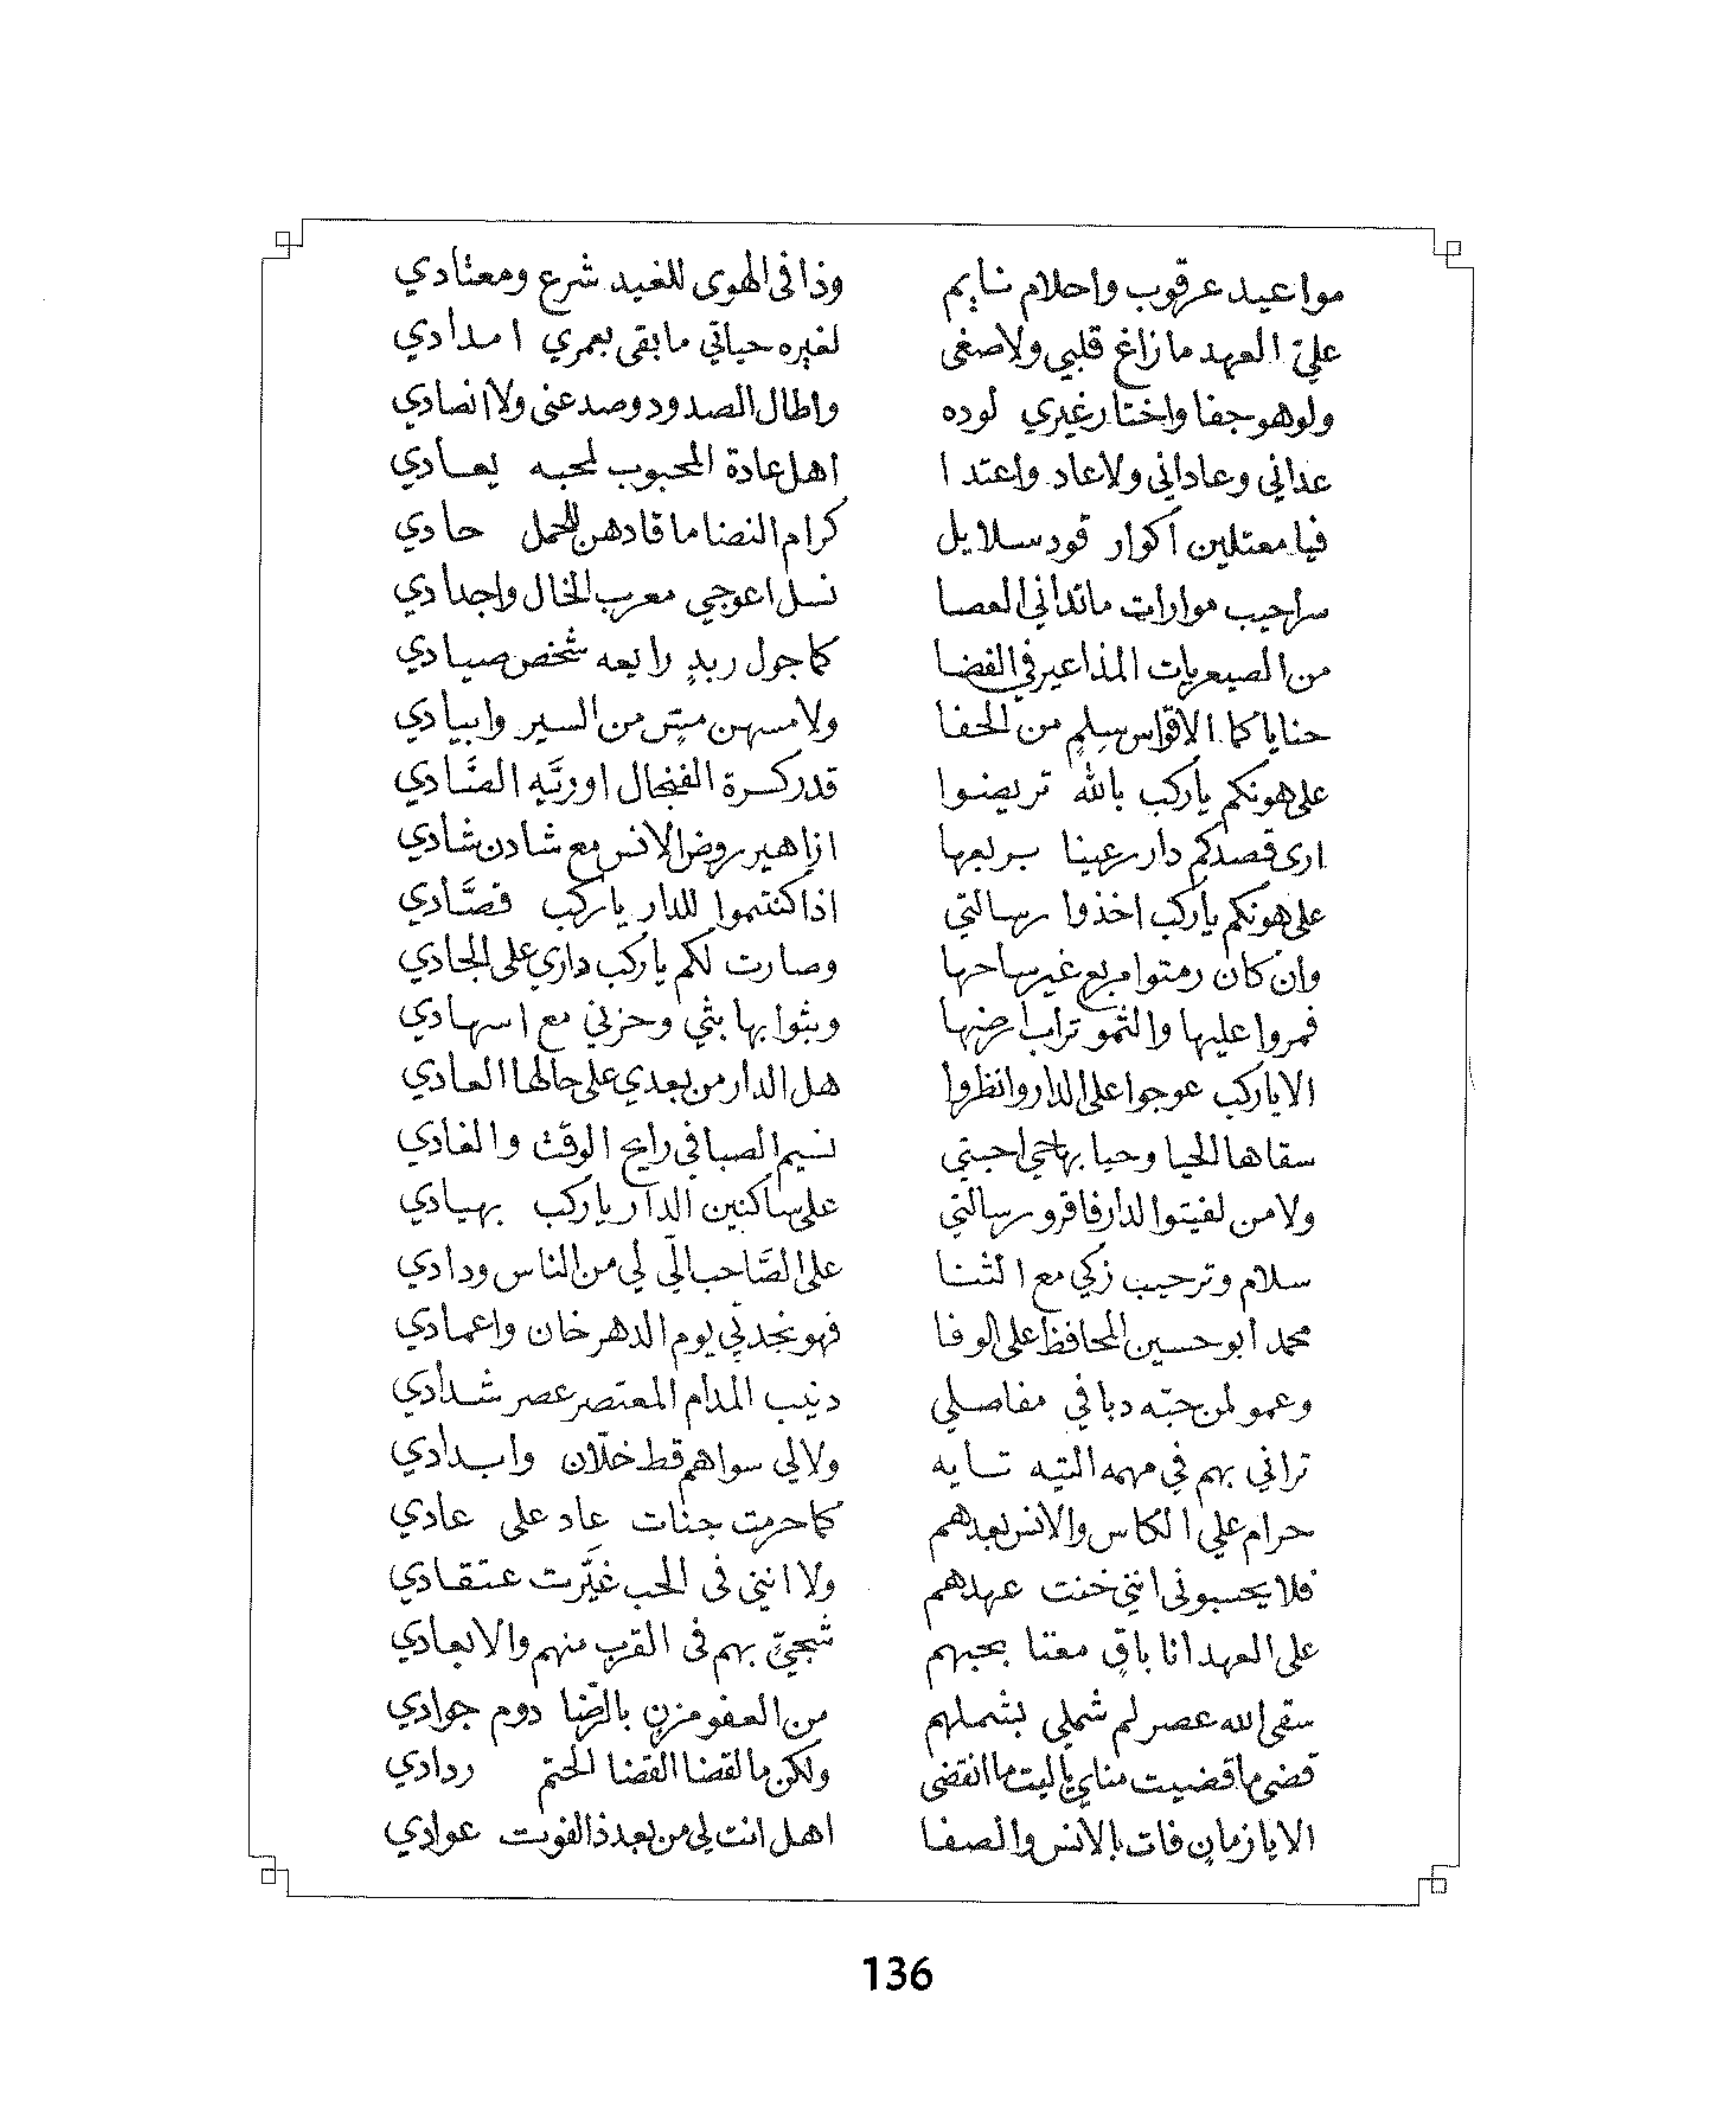 مواعيد عرقوب واحلام نايم وذا في الهوى للغيد شرع ومعتادي
على العهد ما زاغ قلبي ولا صغى لغيره حياتي ما بقى بعمري امدادي
ولو هو جفا واختار غيري لوده واطال الصدود وصد عني ولا انصادي
عداني وعاداني ولا عاد واعتدا اهل عادة المحبوب لمحبه يعادي
فيا معتلين اكوار قود سلايل كرام النضا ما قادهن للحمل حادي
سراحيب موارات ما تداني العصا نسل اعوجي معرب الخال واجدادي
من الصيعريات المذاعير في الفضا كما جول ربدٍ رايعه شخص صيادي
حنايا كما الاقواس سلمٍ من الحفا ولا مسهن من السير وابيادي
على هونكم يا ركب بالله تريضوا قدر كسرة الفنجال او زنَّيه الصنَّادي
ارى قصدكم دار رعينا بربعها ازاهير روض الانس مع شادن شادي
على هونكم يا ركب اخذوا رسالتي اذا كنتموا للدار يا ركب قصَّادي
وان كان رمتوا مربع غير ساحها وصارت لكم يا ركب داري على الجادي
فمروا عليها والثمو تراب ارضها وبثوا بها بثي وحزني مع اسهادي
الا يا ركب عوجوا على الدار وانظروا هل الدار من بعدي على حالها العادي
سقاها الحيا وحيا بها حي احبتي نسيم الصبا في رايح الوقت والغادي
ولا من لفيتوا الدار فاقرو رسالتي على ساكنين الدار يا ركب بهيادي
سلام وترحيب زكي مع الثنا على الصَّاحب الّي لي من الناس ودادي
محمد أبو حسين المحافظ على الوفا فهو نجدتي يوم الدهر خان واعمادي
وعمو لمن حبّه دبا في مفاصلي دبيب المدام المعتصر عصر شدادي
تراني بهم في مهمه التيه تايه ولا لي سواهم قط خلّان وابدادي
حرام علي الكاس والانس بعدهم كما حرمت جنات عاد على عادي
فلا يحسبوني انني خنت عهدهم ولا انني في الحب غيَّرت عتقادي
على العهد انا باقٍ معنا بحبهم شجيّ بهم في القرب منهم والابعادي
سقى الله عصر لم شملي بشملهم من العفو مزنٍ بالرّضا دوم جوادي
قضى ما قضيت مناي يا ليت ما انقضى ولكن ما لقضا القضا الحتم ردادي
الا يا زمانٍ فات بالانس والصفا اهل انت لي من بعد ذا الفوت عوادي
136